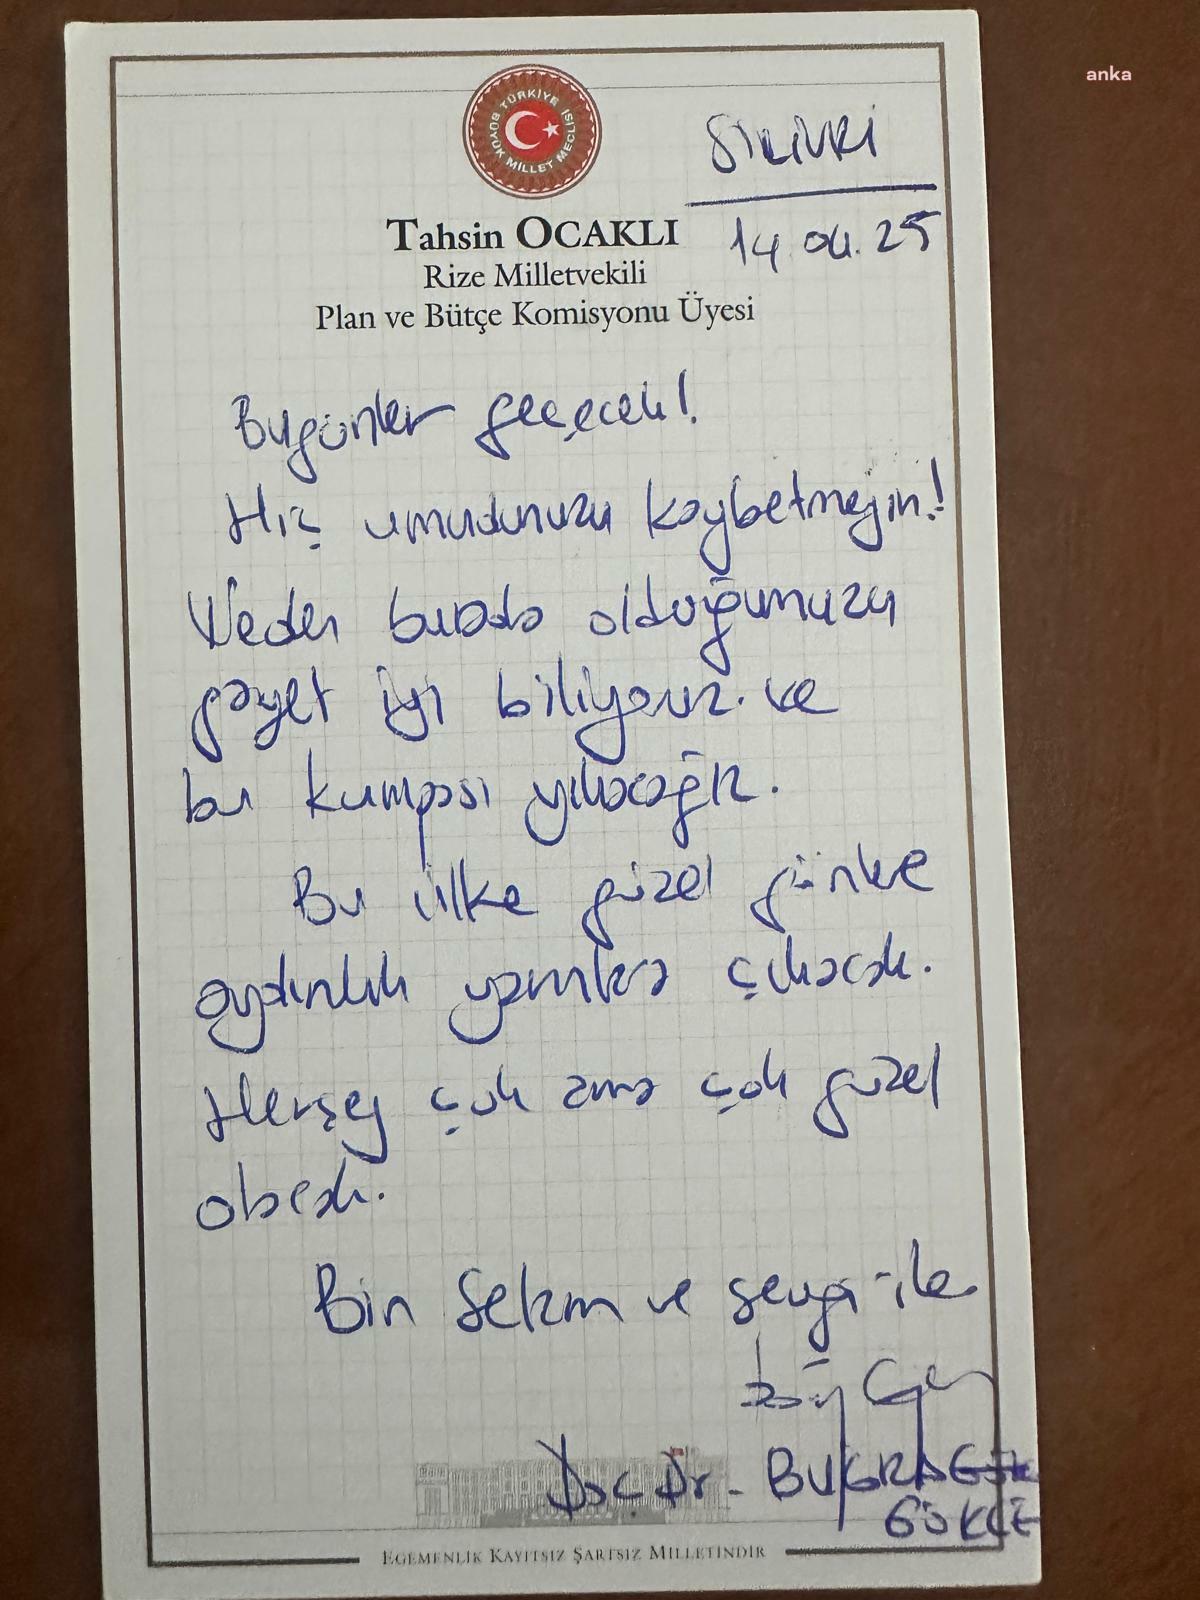 anka
TÜRKİYE BÜYÜK MİLLET MECLİSİ
SİLİVRİ
14.04.25
Tahsin OCAKLI
Rize Milletvekili
Plan ve Bütçe Komisyonu Üyesi
Bugünler geçecek!
Hiç umudunuzu kaybetmeyin!
Neden burada olduğumuzu
gayet iyi biliyoruz. ve
bu kumpası yıkacağız.
Bu ülke güzel günlere
aydınlık yarınlara çıkacak.
Herşey çok ama çok güzel
olacak.
Bin selam ve sevgi ile
Doç. Dr. BUĞRA GÖK
GÖKÇE
EGEMENLİK KAYITSIZ ŞARTSIZ MİLLETİNDİR